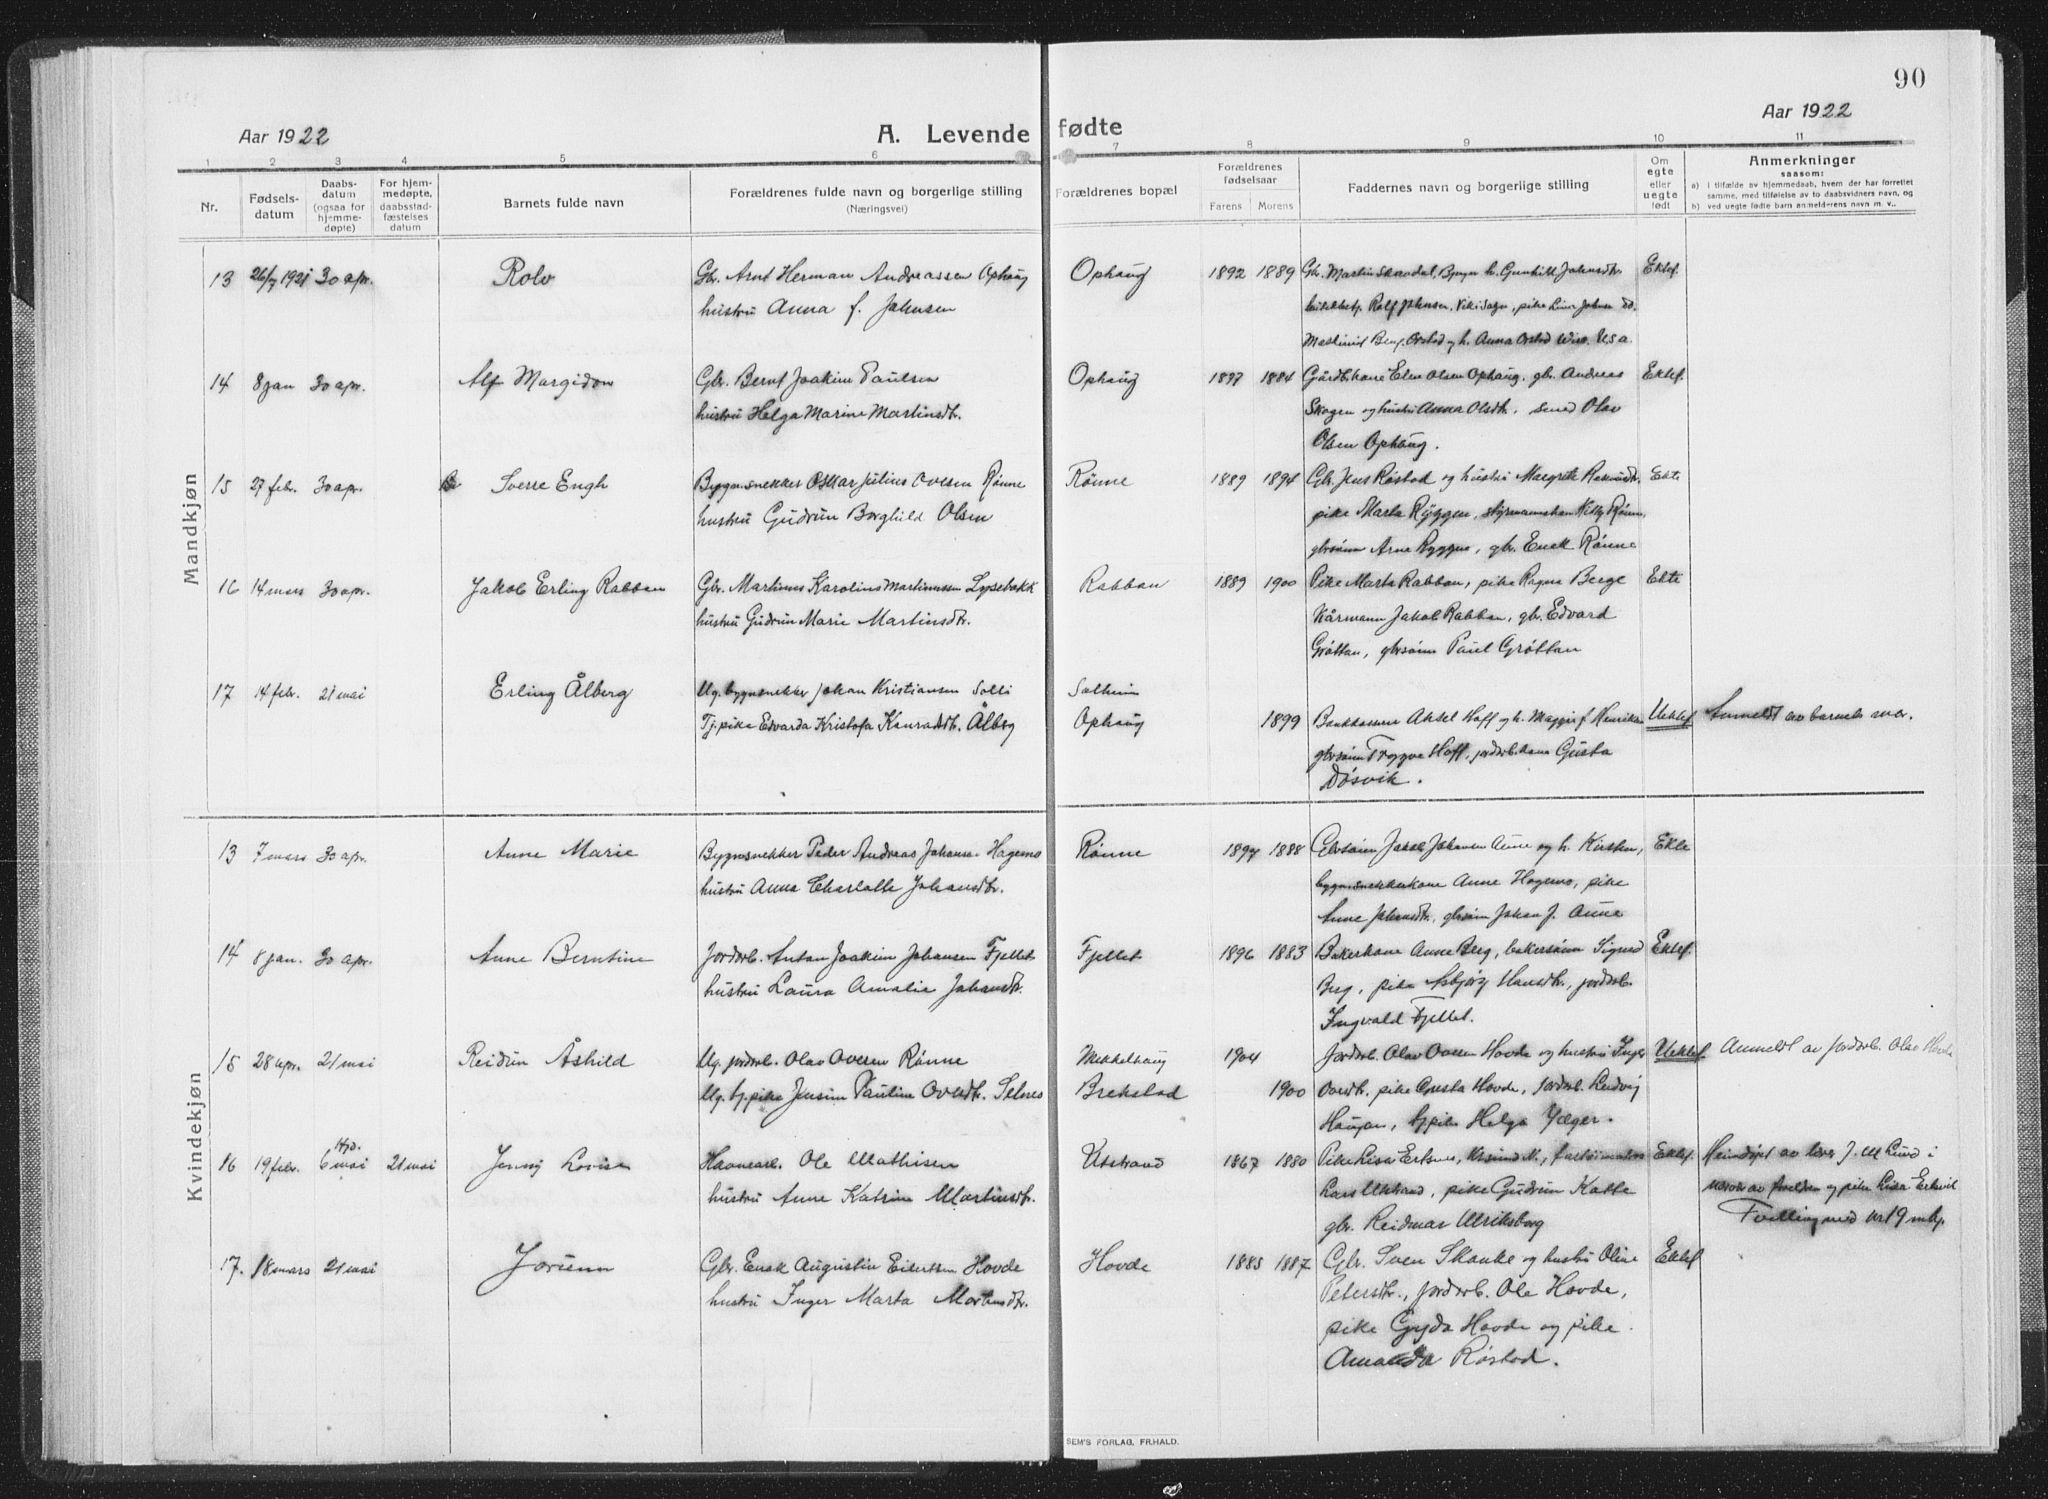 90
Aar 1922
A. Levende fødte
Aar 1922
1 2 3 4 5 6 7 8 9 10 11
Nr.
Fødsels-
datum
Daabs-
datum
(ogsaa for
hjemme-
døpte)
For hjem-
medøpte,
daabsstad-
fæstelses
datum
Barnets fulde navn
Forældrenes fulde navn og borgerlige stilling
(Næringsvei)
Forældrenes bopæl
Forældrenes
fødselsaar
Farens Morens
Faddernes navn og borgerlige stilling
Om
egte
eller
uegte
født
Anmerkninger
saasom:
a) i tilfælde av hjemmedaab, hvem der har forrettet
samme, med tilføielse av to daabsvidners navn, og
b) ved uegte fødte barn anmelderens navn m. v..
Mandkjøn
13 26/7 1921 30 apr. Rolv
Gbr. Arnt Herman Andreassen Ophaug
hustru Anna f. Johnsen
Ophaug 1892 1889
Gbr. Martin Skaadal, Bjugn h. Gunhild Johnsdtr.
Rolf Johnsen, pike Lina Johnsen
og h. Anna Orstad Wisc. Usa.
Ektef.
14 8 jan 30 apr. Alf Margidon
Gbr. Bernt Joakim Paulsen
hustru Helga Marine Martinsdtr.
Ophaug 1897 1884
Gårdbr.kone Elen Olsen Ophaug, gbr. Andreas
Skogen og hustru Anna Olsdtr., smed Olav
Olsen Ophaug.
Ektef.
15 27 febr. 30 apr. Sverre Engh
Bygn.snekker Oskar Julius Ovesen Rønne
hustru Gudrun Borghild Olsen
Rønne 1889 1894
Gbr. Jens Røstad og hustru Margrete
pike Marta Ryggen, Rønne,
gbrsønn Arne Ryggen, gbr. Enok Rønne
Ekte
16 14 mars 30 apr. Jakob Erling Rabben
Gbr. Martinus Karolius Martinussen Lysebakk
hustru Gudrun Marie Martinsdtr.
Rabban 1889 1900
Pike Marta Rabban, pike Ragna Berge
Kårmann Jakob Rabban, gbr. Edvard
Grøttan, gbrsønn Paul Grøttan
Ekte
17 14 febr. 21 mai Erling Ålberg
Ug. bygnsnekker Johan Kristiansen Solli
Tj.pike Edvarda Kristofa Konradsdtr. Ålberg
Solheim
Ophaug 1899
Aksel Hoff og h. Maggi f. Henriksen
gbrsønn Trygve Hoff, jordbr.kone Gusta
Døsvik.
Uektef
Anmeldt av barnets mor.
Kvindekjøn
13 7 mars 30 apr. Anne Marie
Bygnsnekker Peder Andreas Johansen Hagemo
hustru Anna Charlotte Johansdtr.
Rønne 1894 1888
Gbrsønn Jakob Johansen Aune og h. Kirsten,
bygn.snekkerkone Anne Hagemo, pike
Anne Johansdtr. gbrsønn Johan J. Aune
Ekte
14 8 jan. 30 apr. Anne Berntine
Jordbr. Anton Joakim Johansen Fjellet
hustru Laura Amalie Johansdtr.
Fjellet 1896 1883
Bakerkone Anne Berg, bakersønn Sigurd
Berg, pike Asbjørg Hansdtr., jordbr.
Ingvald Fjellet.
Ektef.
15 28 apr. 21 mai Reidun Åshild
Ug. jordbr. Olav Ovesen Rønne
Ug. tj.pike Jensine Pauline Ovedtr. Selnes
Mekkelhaug 1904
Brekstad 1900
Jordbr. Olav Ovesen Hovde og hustru Inger
Ovedtr. pike Gusta Hovde, jordbr. Ludvig
Haugan, tj.pike Helga Jæger.
Uektef
Anmeldt av jordbr. Olav Hovde
16 19 febr. Hjd. 6 mai 21 mai Jenny Lovise
Havnearb. Ole Mathisen
hustru Anne Katrine Martinsdtr.
Utstrand 1867 1880
Pike Lisa Ertsvik, Krsund N.,
Lars Utstrand, pike Gudrun Katte
gbr. Reidmar Ulriksborg
Ektef.
Heimdøpt av lærer J. M Lund i
nærvær av foreldre og pike Lisa Ertsvik
Tvilling med nr 19 mkj.
17. 18 mars 21 mai Jorunn
Gbr. Enok Augustin Eilertsen Hovde
hustru Inger Marta Mortensdtr.
Hovde 1885 1887
Gbr. Sven Skanke og hustru Oline
Petersdtr., jordbr. Ole Hovde,
pike Gyda Hovde og pike
Amanda Røstad.
Ektef
SEM'S FORLAG, FR.HALD.